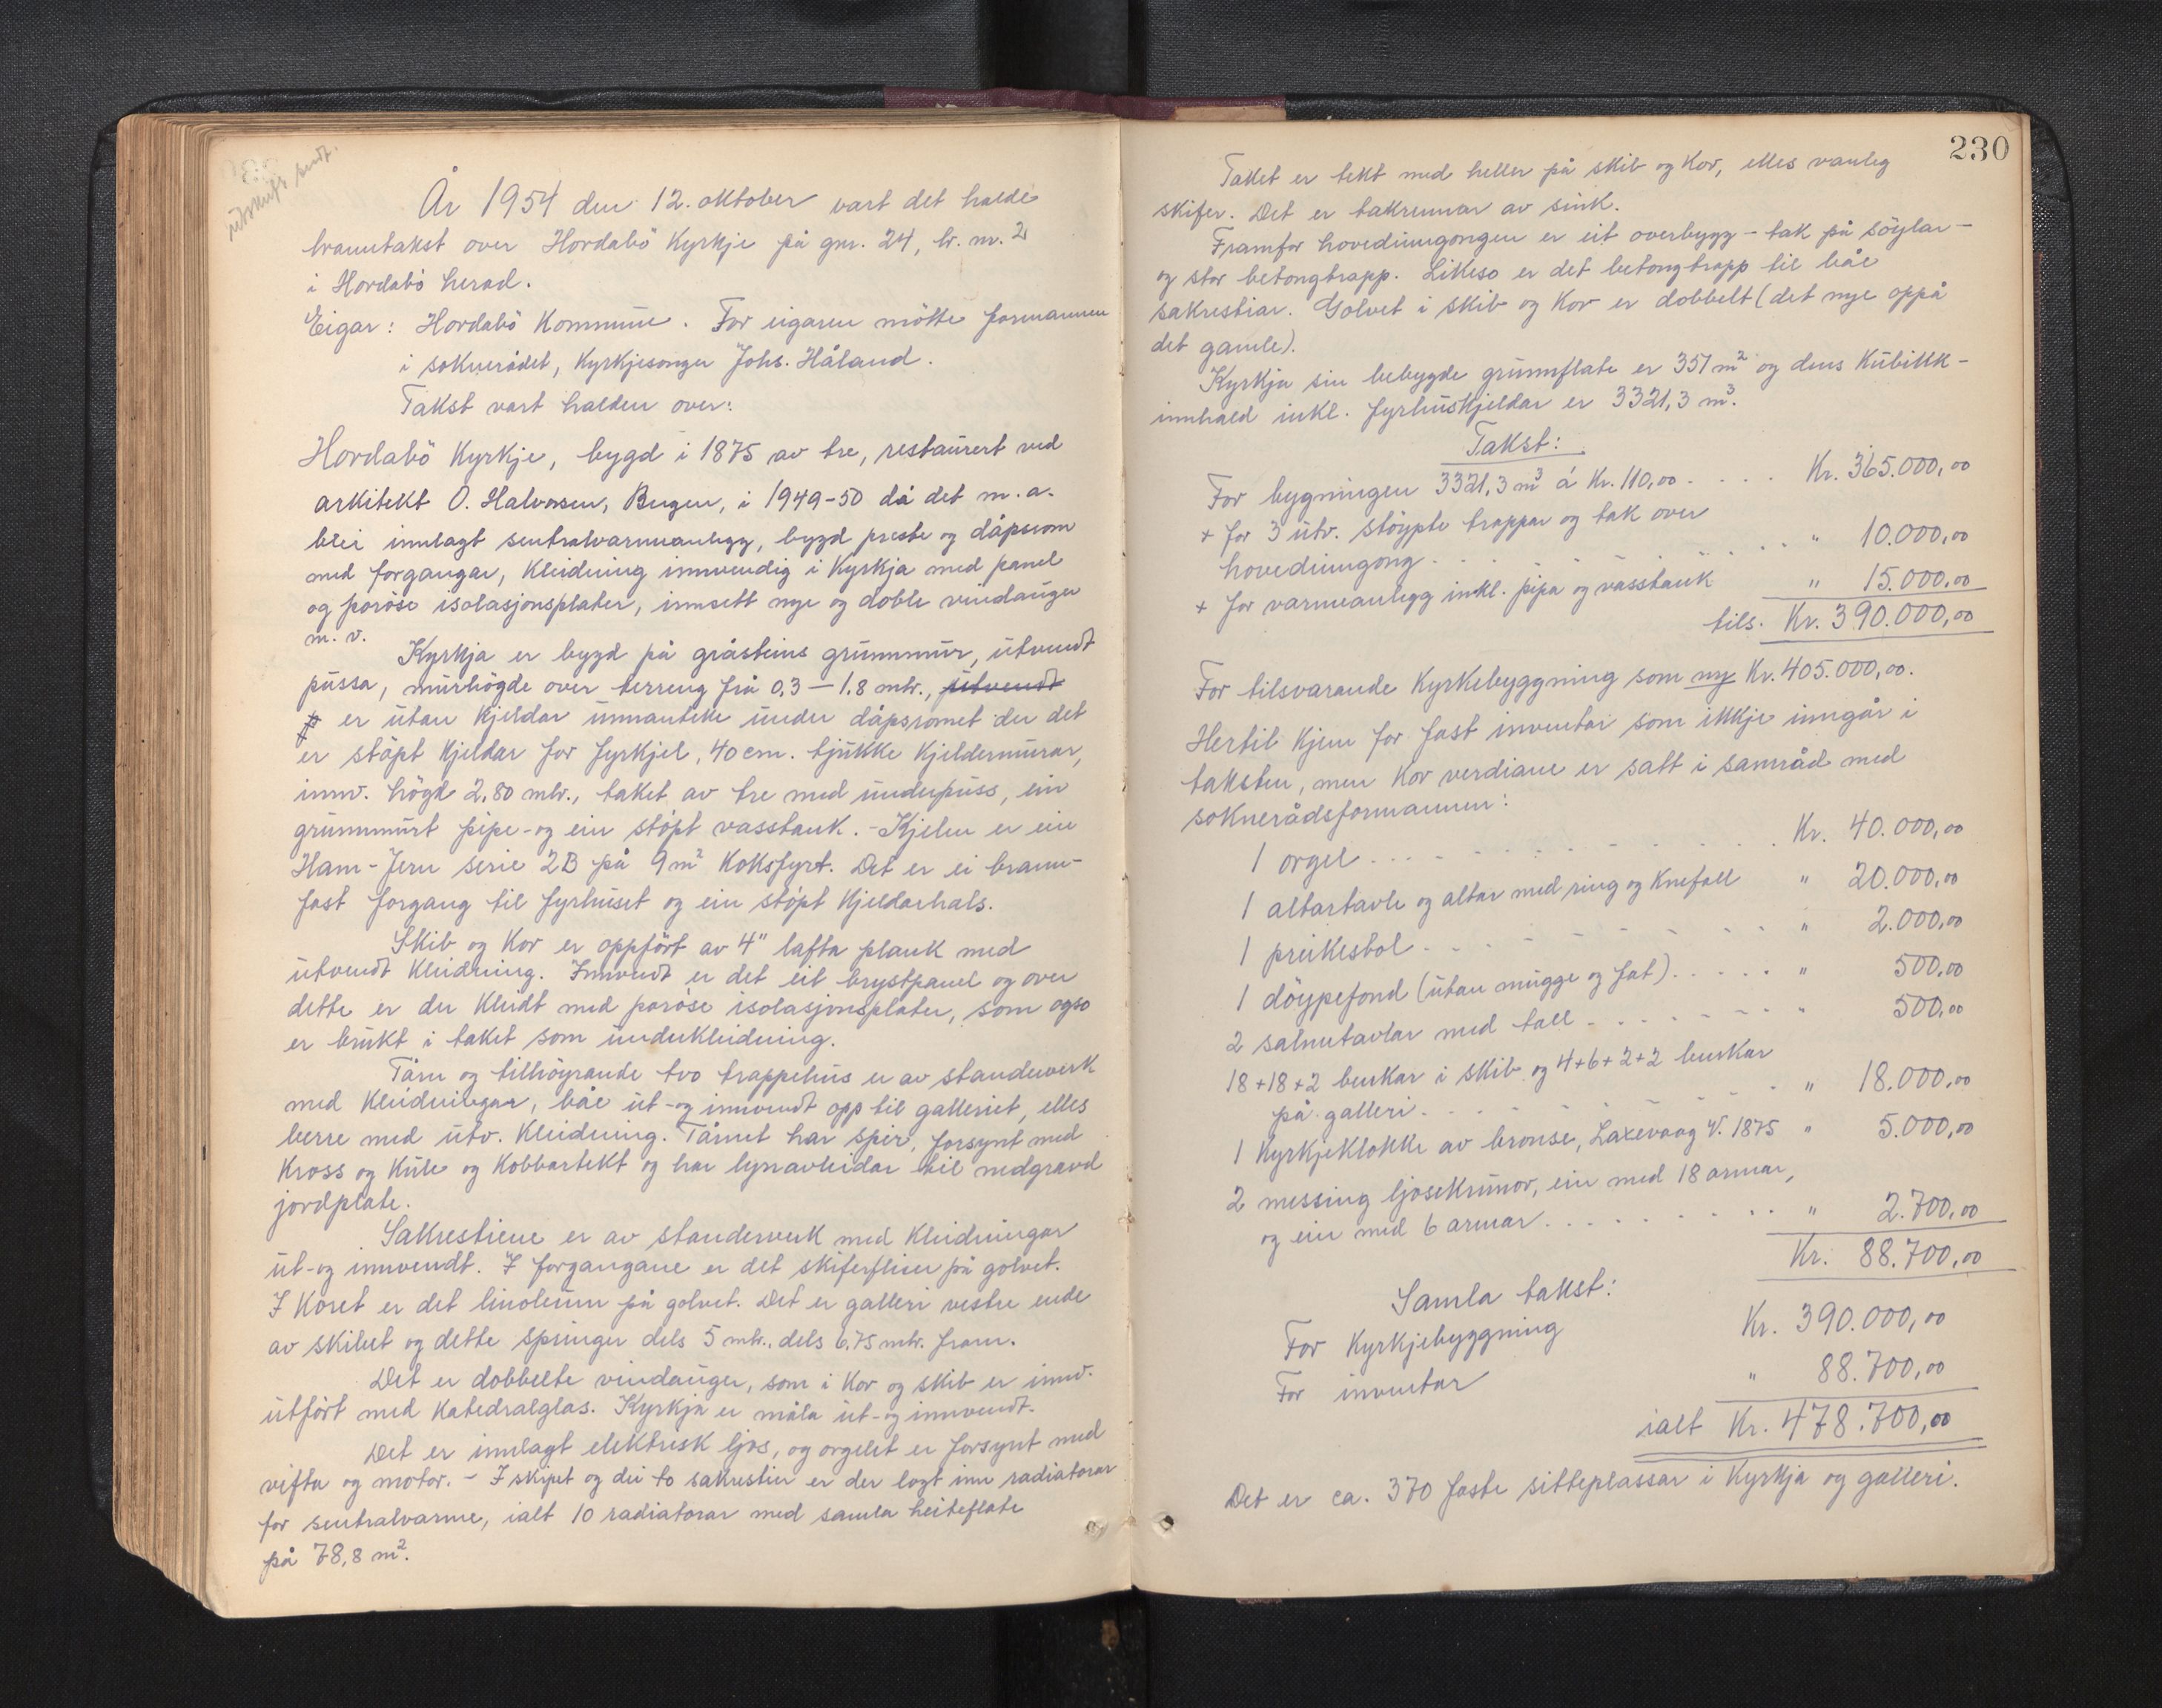 utskrift sendt.
År 1954 den 12. oktober vart det halde
branntakst over Hordabö Kyrkje på gnr. 24, br. nr. 2
i Hordabö herad.
Eigar: Hordabö Kommune. For eigaren mötte formannen
i sokneådet, Kyrkjesongar Johs. Håland.
Takst vart halden over:
Hordabö Kyrkje, bygd i 1875 av tre, restaurert ved
arkitekt O. Halvorsen, Bergen, i 1949-50 då det m.a.
blei innlagt sentralvarmeanlegg, bygd preste og dåpsrom
med forgangar, Kleidning innvendig i Kyrkja med panel
og poröse isolasjonsplater, innsett nye og doble vindauger
m.v.
Kyrkja er bygd på gråsteins grunnmur, utvendt
pussa, murhögde over terreng frå 0,3 — 1,8 mtr., utvendt
er utan Kjeldar unnanteke under dåpsromet der det
er stöpt Kjeldar for fyrkjel, 40 cm. tjukke Kjeldermurar,
innv. högde 2,80 mtr., taket av tre med underpuss, ein
grunnmurt pipe- og ein stöpt vasstank. - Kjelen er ein
Ham-Jern serie 2B på 9 m² Koksfyrt. Det er ei brann-
fast forgang til fyrhuset og ein stöpt Kjeldarhals.
Skib og Kor er oppfört av 4" lafta plank med
utvendt Kleidning. Innvendt er det eit brystpanel og over
dette er der Kleidt med poröse isolasjonsplater, som ogso
er brukt i taket som underkleidning.
Tårn og tilhöyrande tvo trappehus er av standerverk
med Kleidningar, båe ut- og innvendt opp til galleriet, elles
berre med utv. Kleidning. Tårnet har spir, forsynt med
Kross og Kule og Kobbartekt og har lynavleidar til nedgravd
jordplate.
Sakrestiene er av standerverk med Kleidningar
ut- og innvendt. I forgangane er det skiferfliser på golvet.
I Koret er det linoleum på golvet. Det er galleri vestre ende
av skibet og dette springer dels 5 mtr., dels 6,75 mtr. fram.
Det er dobbelte vindauger, som i Kor og skib er innv.
utfört med Katedralglas. Kyrkja er måla ut- og innvendt.
Det er innlagt elektrisk ljos, og orgelet er forsynt med
vifta og motor. - I skipet og dei to sakrestier er der lagt inn radiatorar
for sentralvarme, ialt 10 radiatorar med samla heiteflate
på 78,8 m².
230
Taket er tekt med heller på skib og Kor, elles vanleg
skifer. Det er takrennar av sink.
Framfor hovedinngongen er eit overbygg - tak på söylar -
og stor betongtrapp. Likeso er det betongtrapp til båe
sakrestiar. Golvet i skib og Kor er dobbelt (det nye oppå
det gamle).
Kyrkja sin bebygde grunnflate er 351 m² og dens Kubikk-
innhald inkl. fyrhuskjeldar er 3321,3 m³.
Takst:
For bygningen 3321,3 m³ á Kr. 110,00 . . . . Kr. 365.000,00
+ for 3 utv. stöypte trappar og tak over
hovedinngong . . . . . . . . . " 10.000,00
+ for varmeanlegg inkl. pipa og vasstank " 15.000,00
tils. Kr. 390.000,00
For tilsvarande Kyrkebyggning som ny Kr. 405.000,00.
Hertil Kjem for fast inventar som ikkje inngår i
taksten, men Kor verdiane er satt i samråd med
soknerådsformannen:
1 orgel . . . . . . . . . . . . . Kr. 40.000,00
1 altartavle og altar med ring og Knefall " 20.000,00
1 preikestol . . . . . . . . . . . " 2.000,00
1 döypefond (utan mugge og fat) . . . . . " 500,00
2 salmetavlar med tall . . . . . . . . " 500,00
18+18+2 benkar i skib og 4+6+2+2 benkar
på galleri . . . . . . . . . . . " 18.000,00
1 Kyrkjeklokke av bronse, Laxevaag V. 1875 " 5.000,00
2 messing ljosekrunor, ein med 18 armar,
og ein med 6 armar . . . . . . . . . " 2.700,00
Kr. 88.700,00
Samla takst:
For Kyrkjebyggning Kr. 390.000,00
For inventar " 88.700,00
ialt Kr. 478.700,00
Det er ca. 370 faste sitteplassar i Kyrkja og galleri.